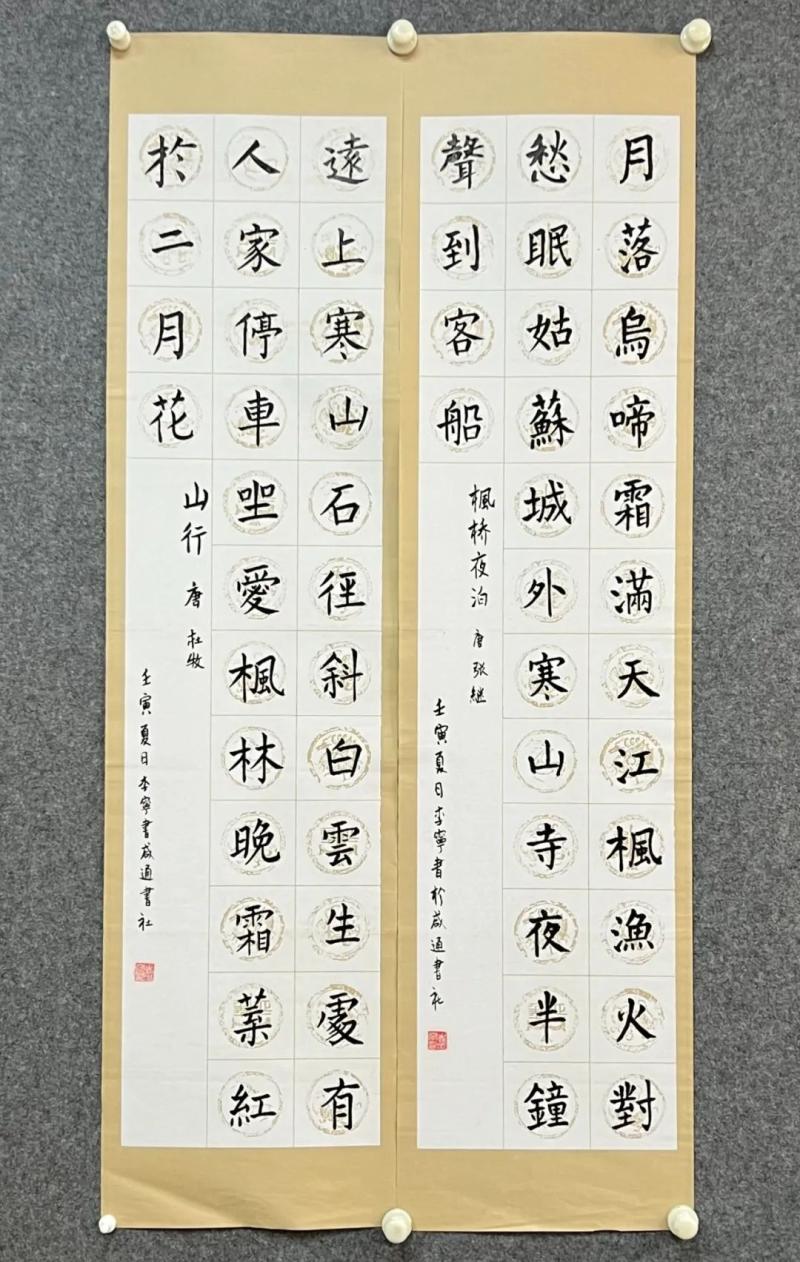 月落烏啼霜滿天江楓漁火對
愁眠姑蘇城外寒山寺夜半鐘
聲到客船
楓桥夜泊 唐 张継
壬寅夏日李寧書於咸通書社
遠上寒山石徑斜白雲生處有
人家停車坐愛楓林晚霜葉紅
於二月花
山行 唐 杜牧
壬寅夏日李寧書咸通書社